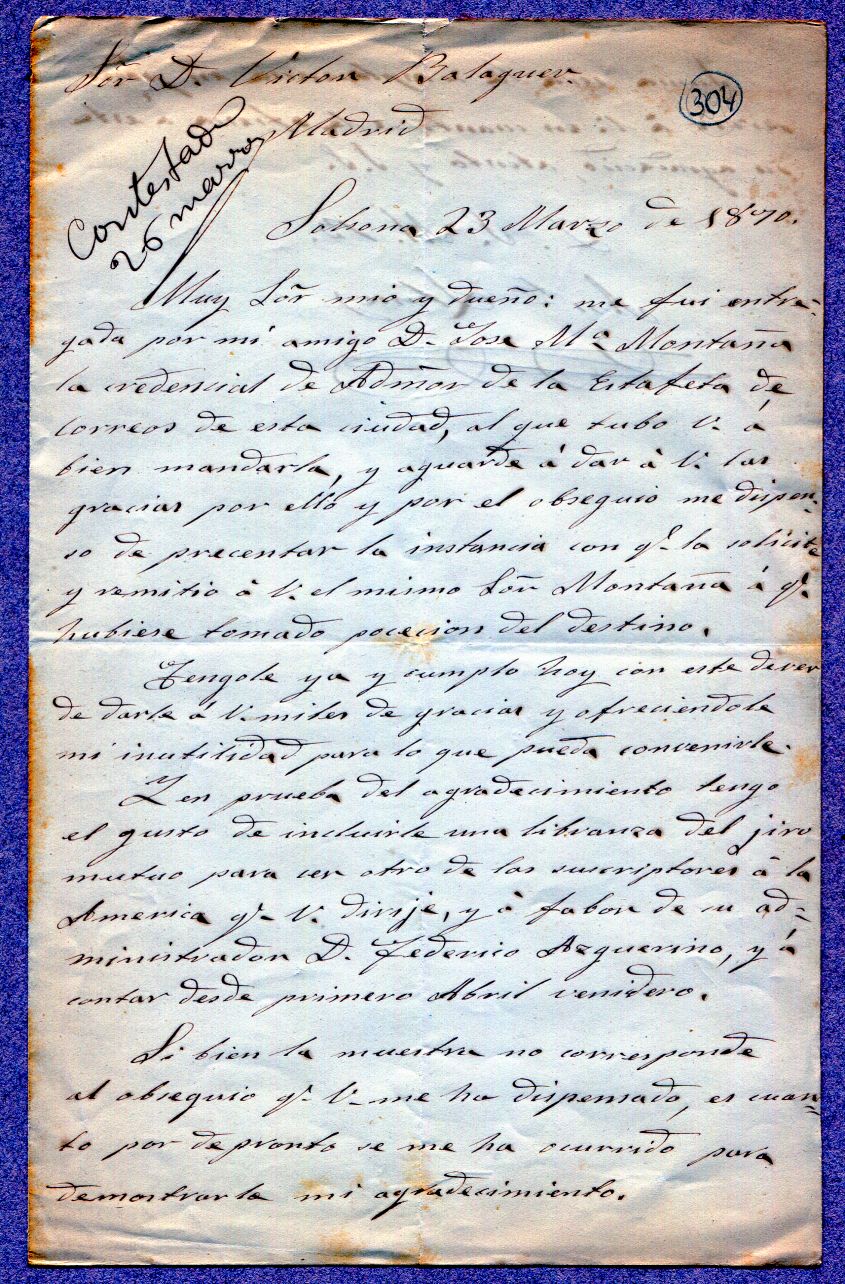 Sor. D. Victor Balaguer.
304
Madrid
Contestada
26 marzo
Solsona 23 Marzo de 1870.
Muy Sor. mio y dueño: me fui entre-
gada por mi amigo D. Jose Ma. Montaña
la credencial de Admor. de la Estafeta de
Correos de esta ciudad, al que tubo V. á
bien mandarla, y aguarde á dar á V. las
gracias por ello y por el obsequio me dispen-
so de precentar la instancia con q.e la solicite
y remitio á V. el mismo Sor. Montaña á q.e
hubiese tomado pocecion del destino.
Tengole ya y cumplo hoy con este dever
de darle á V. miles de gracias y ofreciendole
mi inutilidad para lo que pueda convenirle.
Y en prueba del agradecimiento tengo
el gusto de incluirle una libranza del jiro
mutuo para ser otro de los suscriptores á la
America q.e V. dirije, y á fabor de su ad-
ministrador D. Federico Azquerino, y á
contar desde primero Abril venidero.
Si bien la muestra no corresponde
al obsequio q.e V. me ha dispensado, es cuan-
to por depronto se me ha ocurrido para
demostrarle mi agradecimiento.